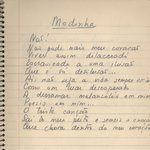 Modinha
Não!
Não pode mais meu coração
Viver assim dilacerado
Escravizado a uma ilusão
Que é só desilusão...
Ah! não seja a vida sempre assim
Como um luar desesperado
A derramar melancolia em mim
Poesia em mim...
Vai triste canção
Sai do meu peito e semeia a emoção
Que chora dentro do meu coração